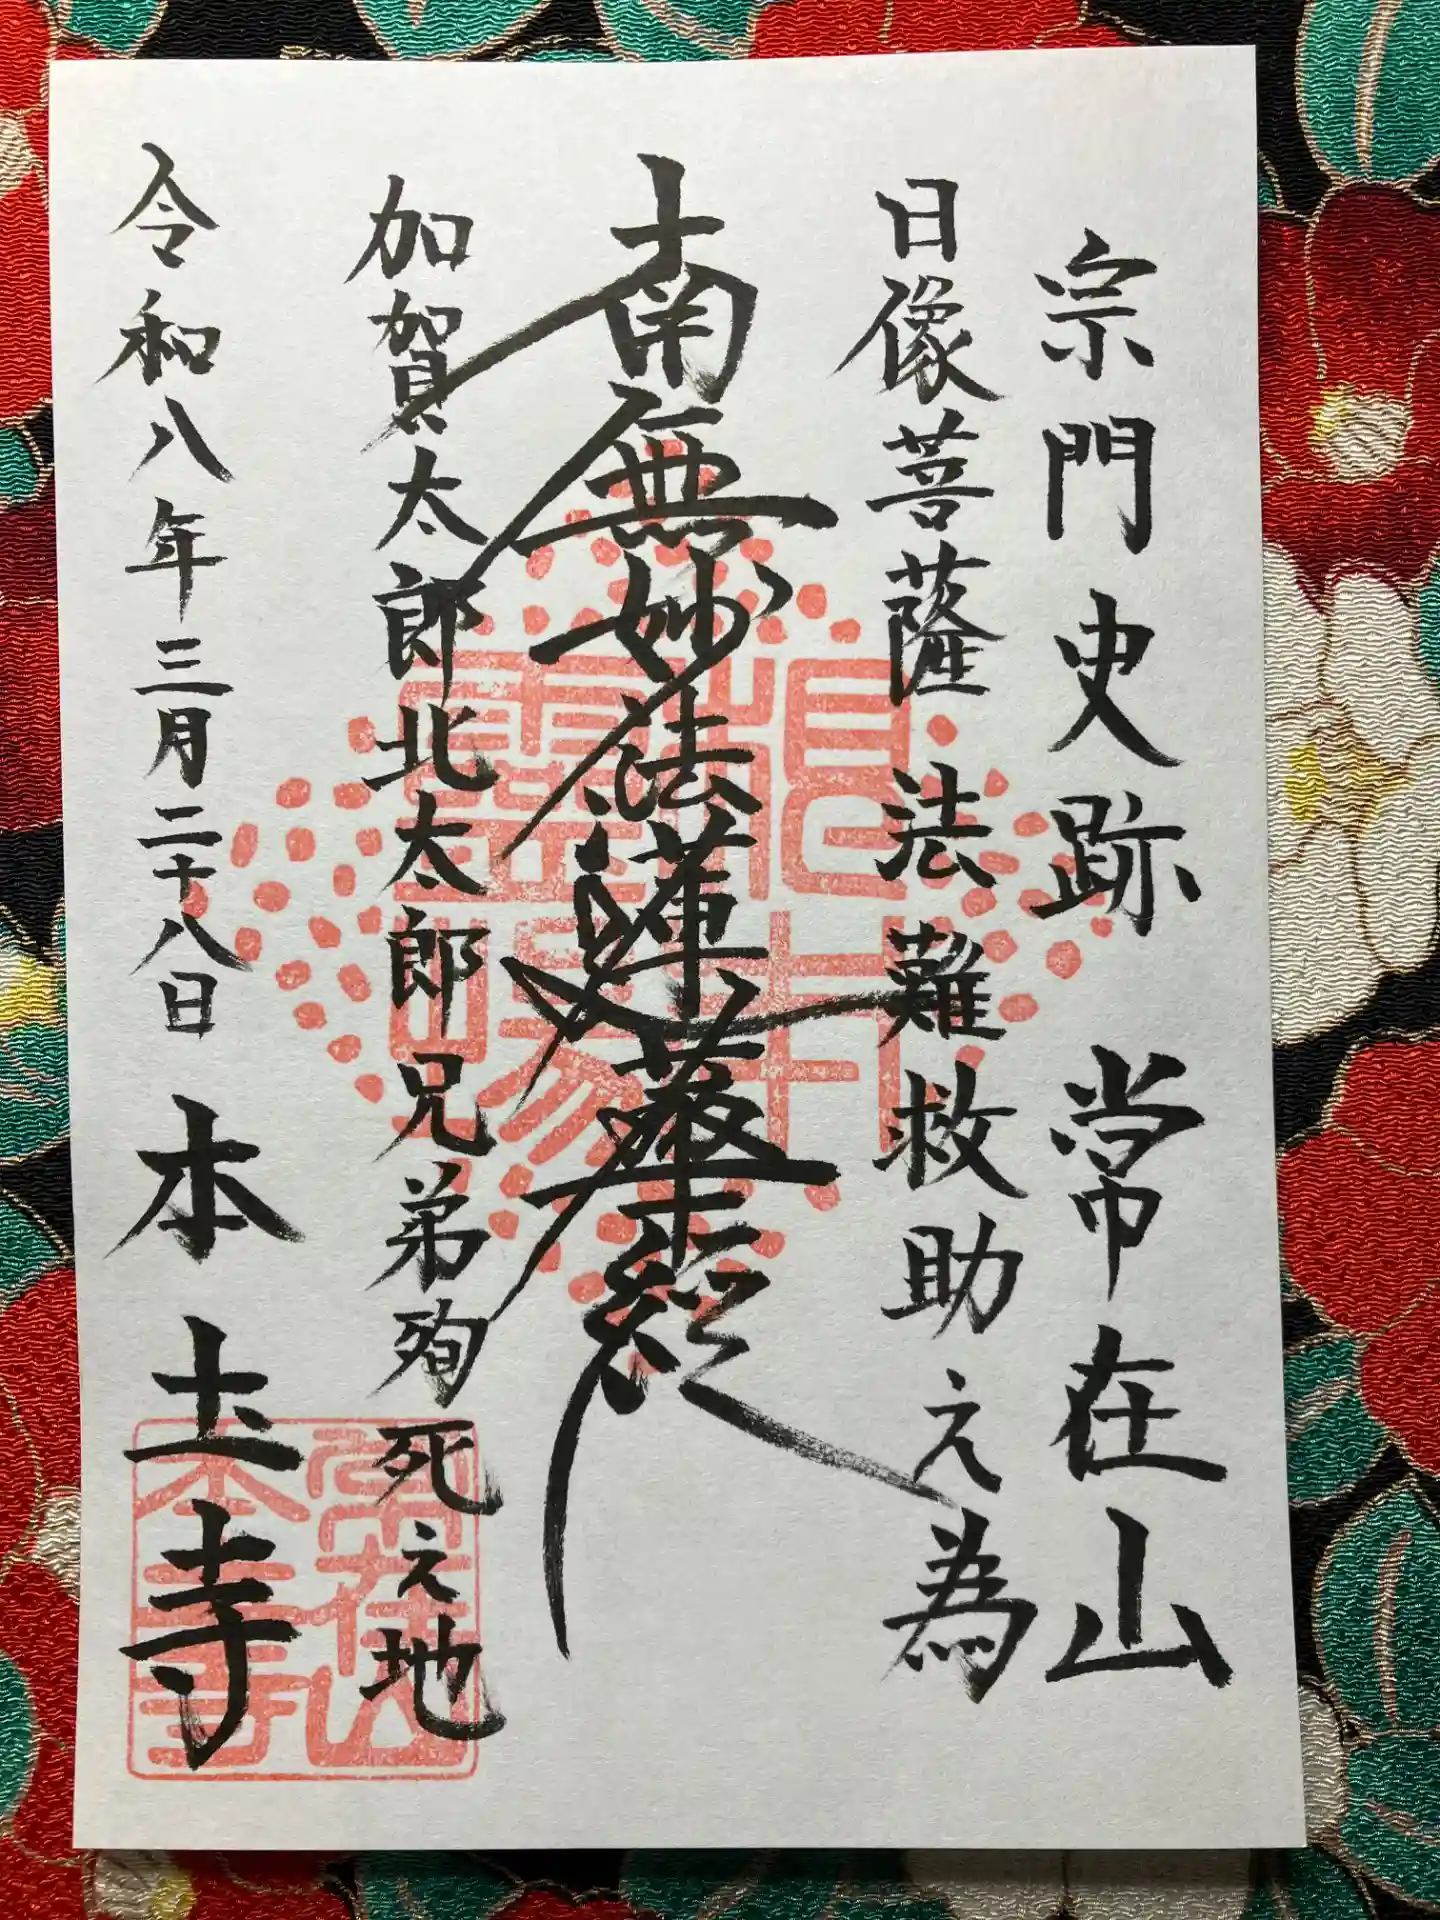 宗門史跡 常在山
日像菩薩法難救助之為
南無妙法蓮華経
加賀太郎北太郎兄弟殉死之地
令和八年三月二十八日 本土寺
常在山
本土寺